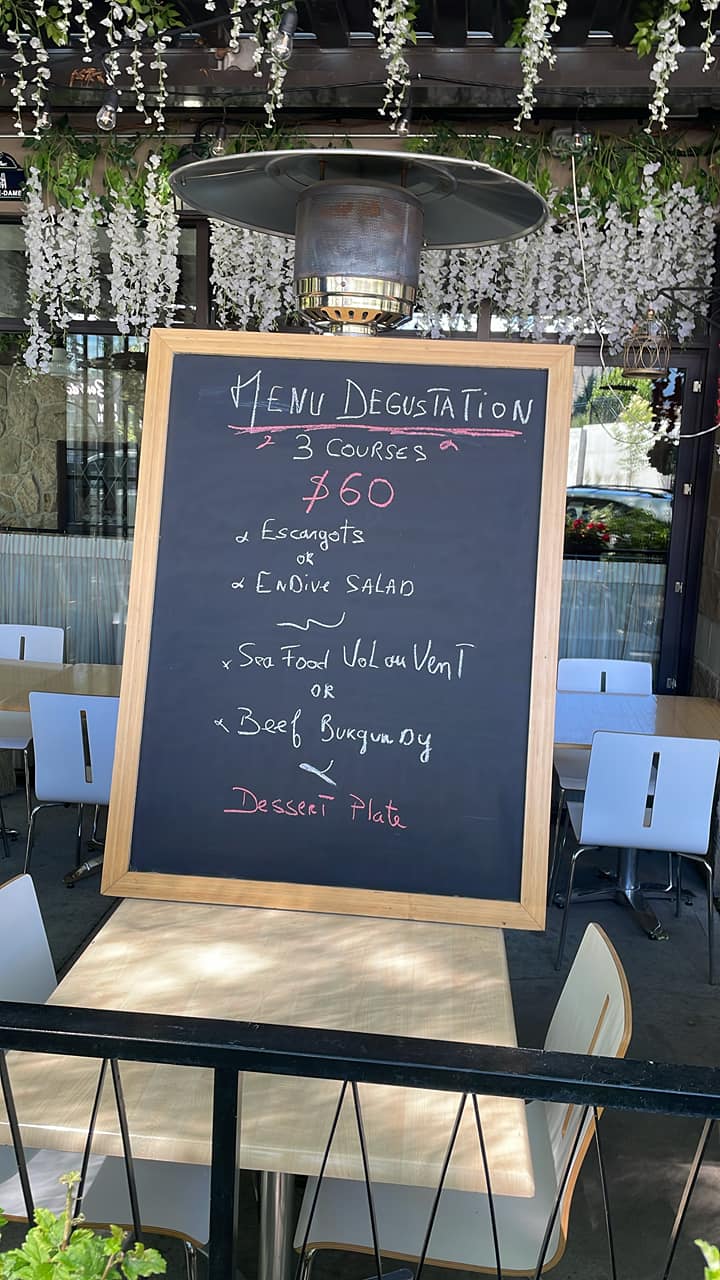 MENU DEGUSTATION
3 COURSES
$60
Escargots
OR
ENDIVE SALAD
Sea Food Vol au VenT
OR
Beef Burgundy
Dessert Plate
-DAME